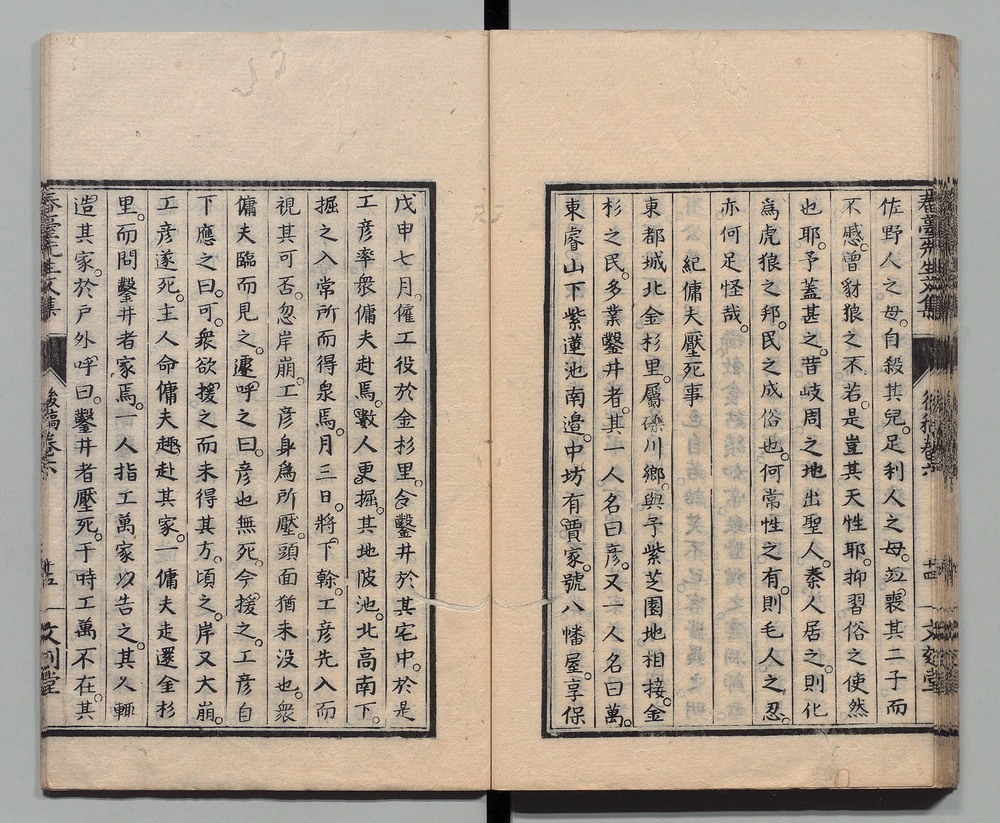 佐野人之母。自殺其兒。足利人之母。並喪其二子而
不慼。曾豺狼之不若。是豈其天性耶。抑習俗之使然
也耶。予蓋甚之。昔岐周之地出聖人。秦人居之。則化
為虎狼之邦。民之成俗也。何常性之有。則毛人之忍。
亦何足怪哉。
紀傭夫壓死事
東都城北金杉里。屬礫川鄉。與予紫芝園地相接。金
杉之民。多業鑿井者。其一人名曰彥。又一人名曰萬。
東睿山下紫蓮池南邊。中坊有賈家。號八幡屋。享保
戊申七月。傕工役於金杉里。令鑿井於其宅中。於是
工彥率衆傭夫赴焉。數人更掘。其地陂池。北高南下。
掘之入常所而得泉焉。月三日。將下榦。工彥先入而
視其可否。忽岸崩。工彥身為所壓。頭面猶未沒也。衆
傭夫臨而見之。遽呼之曰。彥也無死。今援之。工彥自
下應之曰。可。衆欲援之而未得其方。頃之。岸又大崩。
工彥遂死。主人命傭夫趣赴其家。一傭夫走還金杉
里。而問鑿井者家焉。一人指工萬家以告之。其人輒
造其家。於戶外呼曰。鑿井者壓死。于時工萬不在。其
春臺先生文集
後稿卷六
廿四
文刻堂
春臺先生文集
後稿卷六
廿五
文刻堂